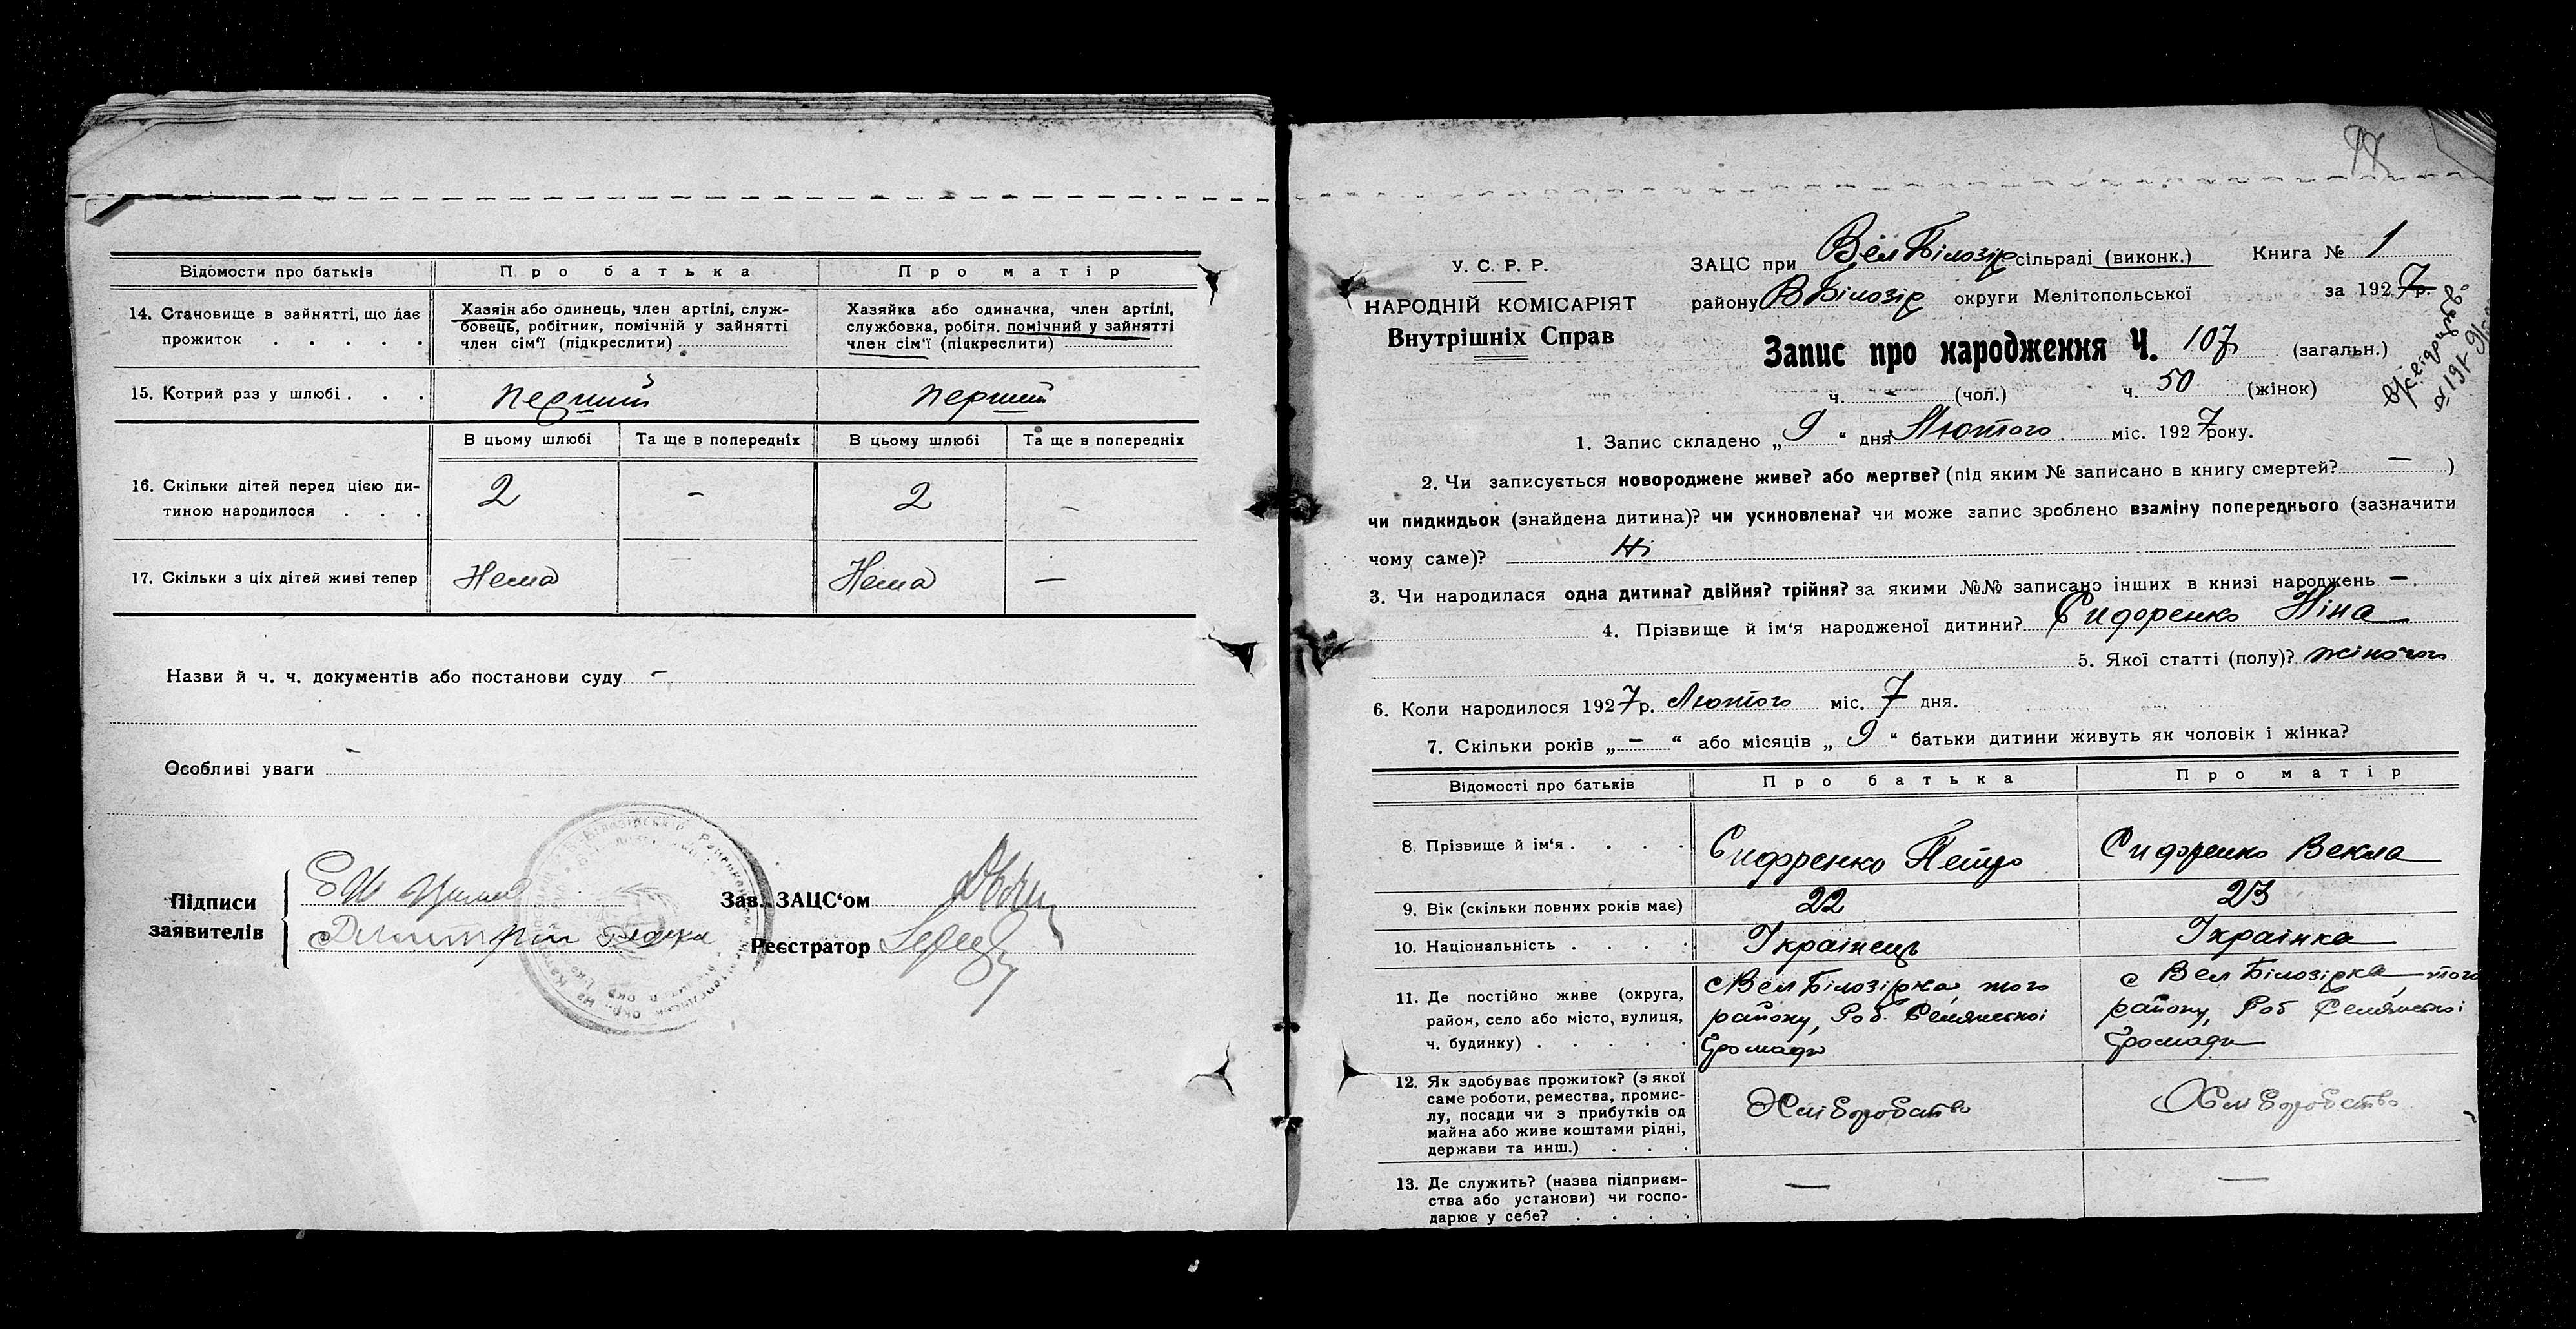 Відомости про батьків Про батька Про матір
14. Становище в зайнятті, що дає прожиток . . . . .
Хазяін або одинець, член артілі, служ-
бовець, робітник, помічній у зайнятті
член сім'ї (підкреслити)
Хазяйка або одиначка, член артілі,
службовка, робітн. помічний у зайнятті
член сім'ї (підкреслити)
15. Котрий раз у шлюбі . . . перший перший
В цьому шлюбі Та ще в попередніх В цьому шлюбі Та ще в попередніх
16. Скільки дітей перед цією ди-
тиною народилося . . . 2 - 2 -
17. Скільки з ціх дітей живі тепер Нема Нема —
Назви й ч. ч. документів або постанови суду -
Особливі уваги -
Підписи
заявителів
Зав. ЗАЦС'ом
Реєстратор
У. С. Р. Р.
НАРОДНІЙ КОМІСАРІЯТ
Внутрішніх Справ
ЗАЦС при Вел Білозір сільраді (виконк.) Книга № 1
району В Білозір округи Мелітопольської за 1927 р.
Запис про народження Ч. 107 (загальн.)
ч. - (чол.) ч. 50 (жінок)
1. Запис складено „ 9 “ дня Лютого міс. 1927 року.
2. Чи записується новороджене живе? або мертве? (під яким № записано в книгу смертей? — )
чи пидкидьок (знайдена дитина)? чи усиновлена? чи може запис зроблено взаміну попереднього (зазначити
чому саме)? Ні
3. Чи народилася одна дитина? двійня? трійня? за якими №№ записано інших в книзі народжень —
4. Прізвище й ім'я народженої дитини? Сидоренко Ніна
5. Якої статті (полу)? жіночого
6. Коли народилося 1927 р. Лютого міс. 7 дня.
7. Скільки років „ — “ або місяців „ 9 “ батьки дитини живуть як чоловік і жінка?
Відомості про батьків Про батька Про матір
8. Прізвище й ім'я . . . . Сидоренко Петро Сидоренко Векла
9. Вік (скільки повних років має) 22 23
10. Національність . . . . Українець Українка
11. Де постійно живе (округа,
район, село або місто, вулиця,
ч. будинку) . . . . .
с Вел Білозірка, того
району, Роб. Селянської
Громади
с Вел Білозірка того
району, Роб Селянської
Громади
12. Як здобуває прожиток? (з якої
саме роботи, ремества, промис-
лу, посади чи з прибутків од
майна або живе коштами рідні,
держави та инш.) . . .
Хліборобство Хліборобство
13. Де служить? (назва підприєм-
ства або установи) чи госпо-
дарює у себе? . . . .
— —